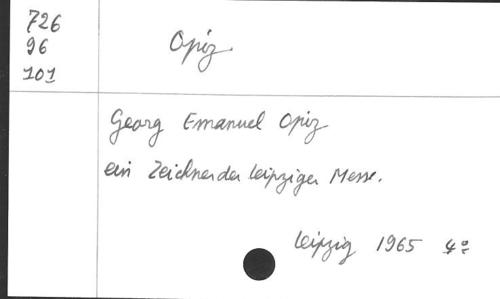 726
96
101
Opiz.
Georg Emanuel Opiz
ein Zeichner der Leipziger Messe.
Leipzig 1965 4°